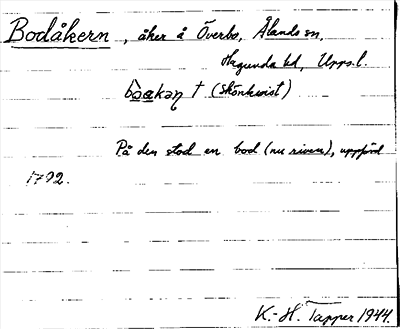 Bodåkern, åker å Överbo, Ålands sn,
Hagunda hd, Upps. l.
† (Skönkvist)
På den stod en bod (nu riven), uppförd
1792.
K.-H. Tapper 1944